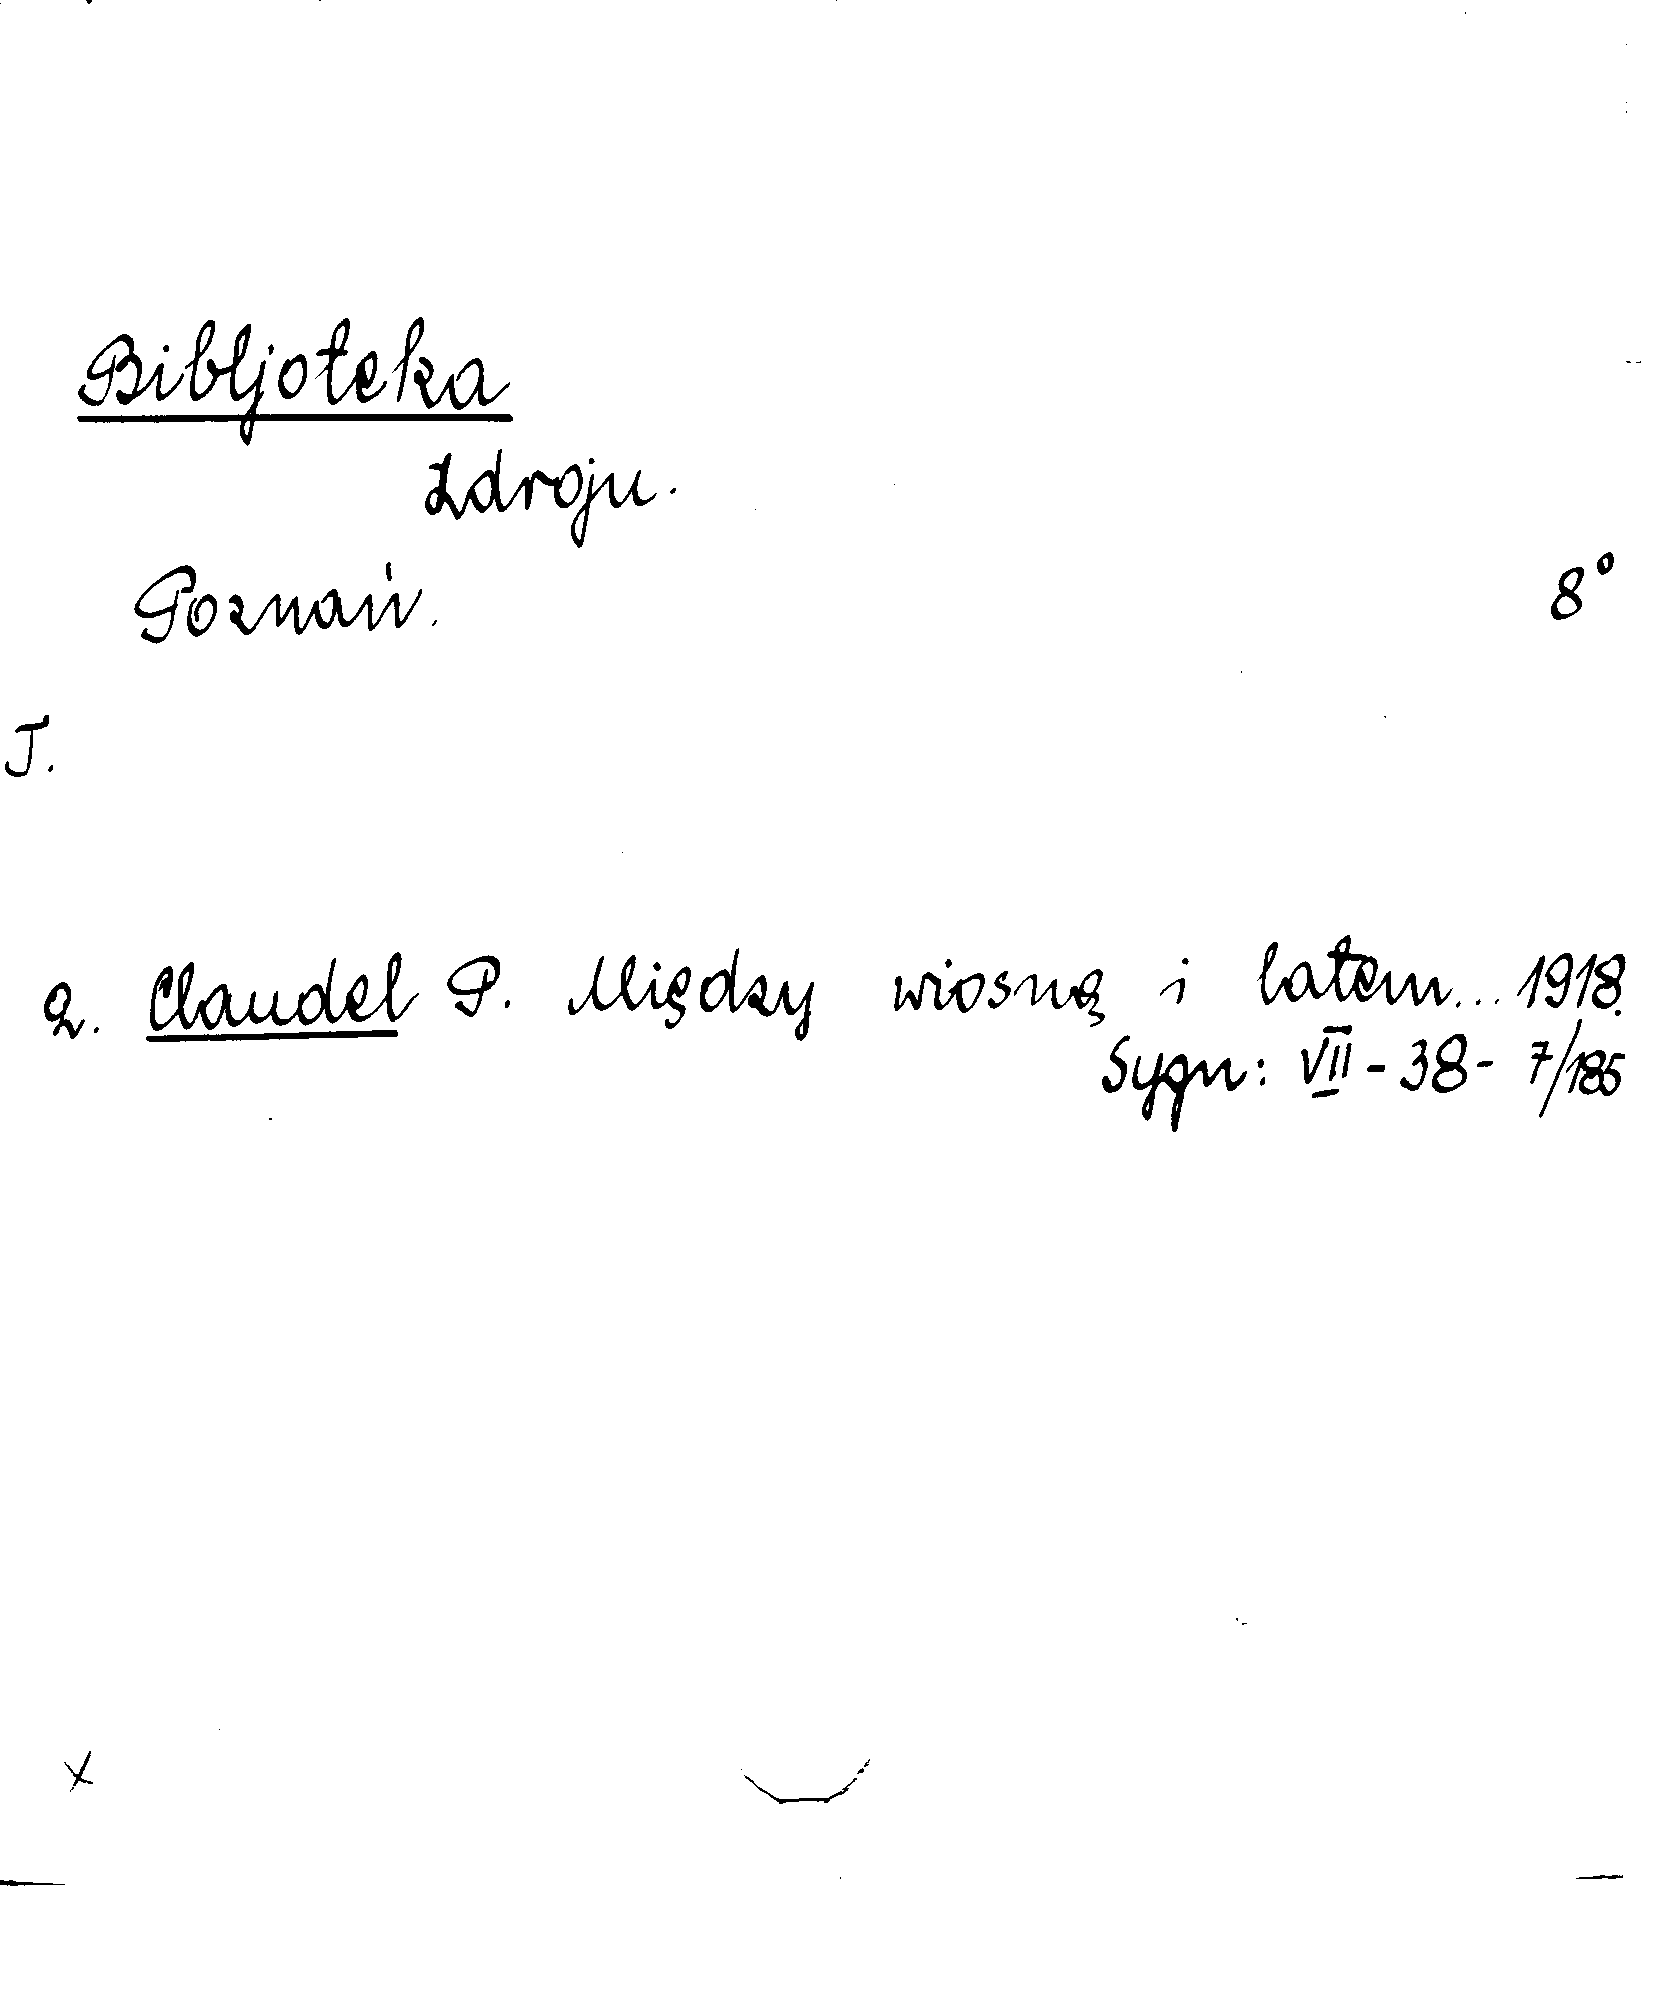 Bibljoteka
Zdroju.
Poznań. 8°
T.
2. Claudel P. Między wiosną i latem... 1918.
Sygn: VII - 38 - 7/185
x